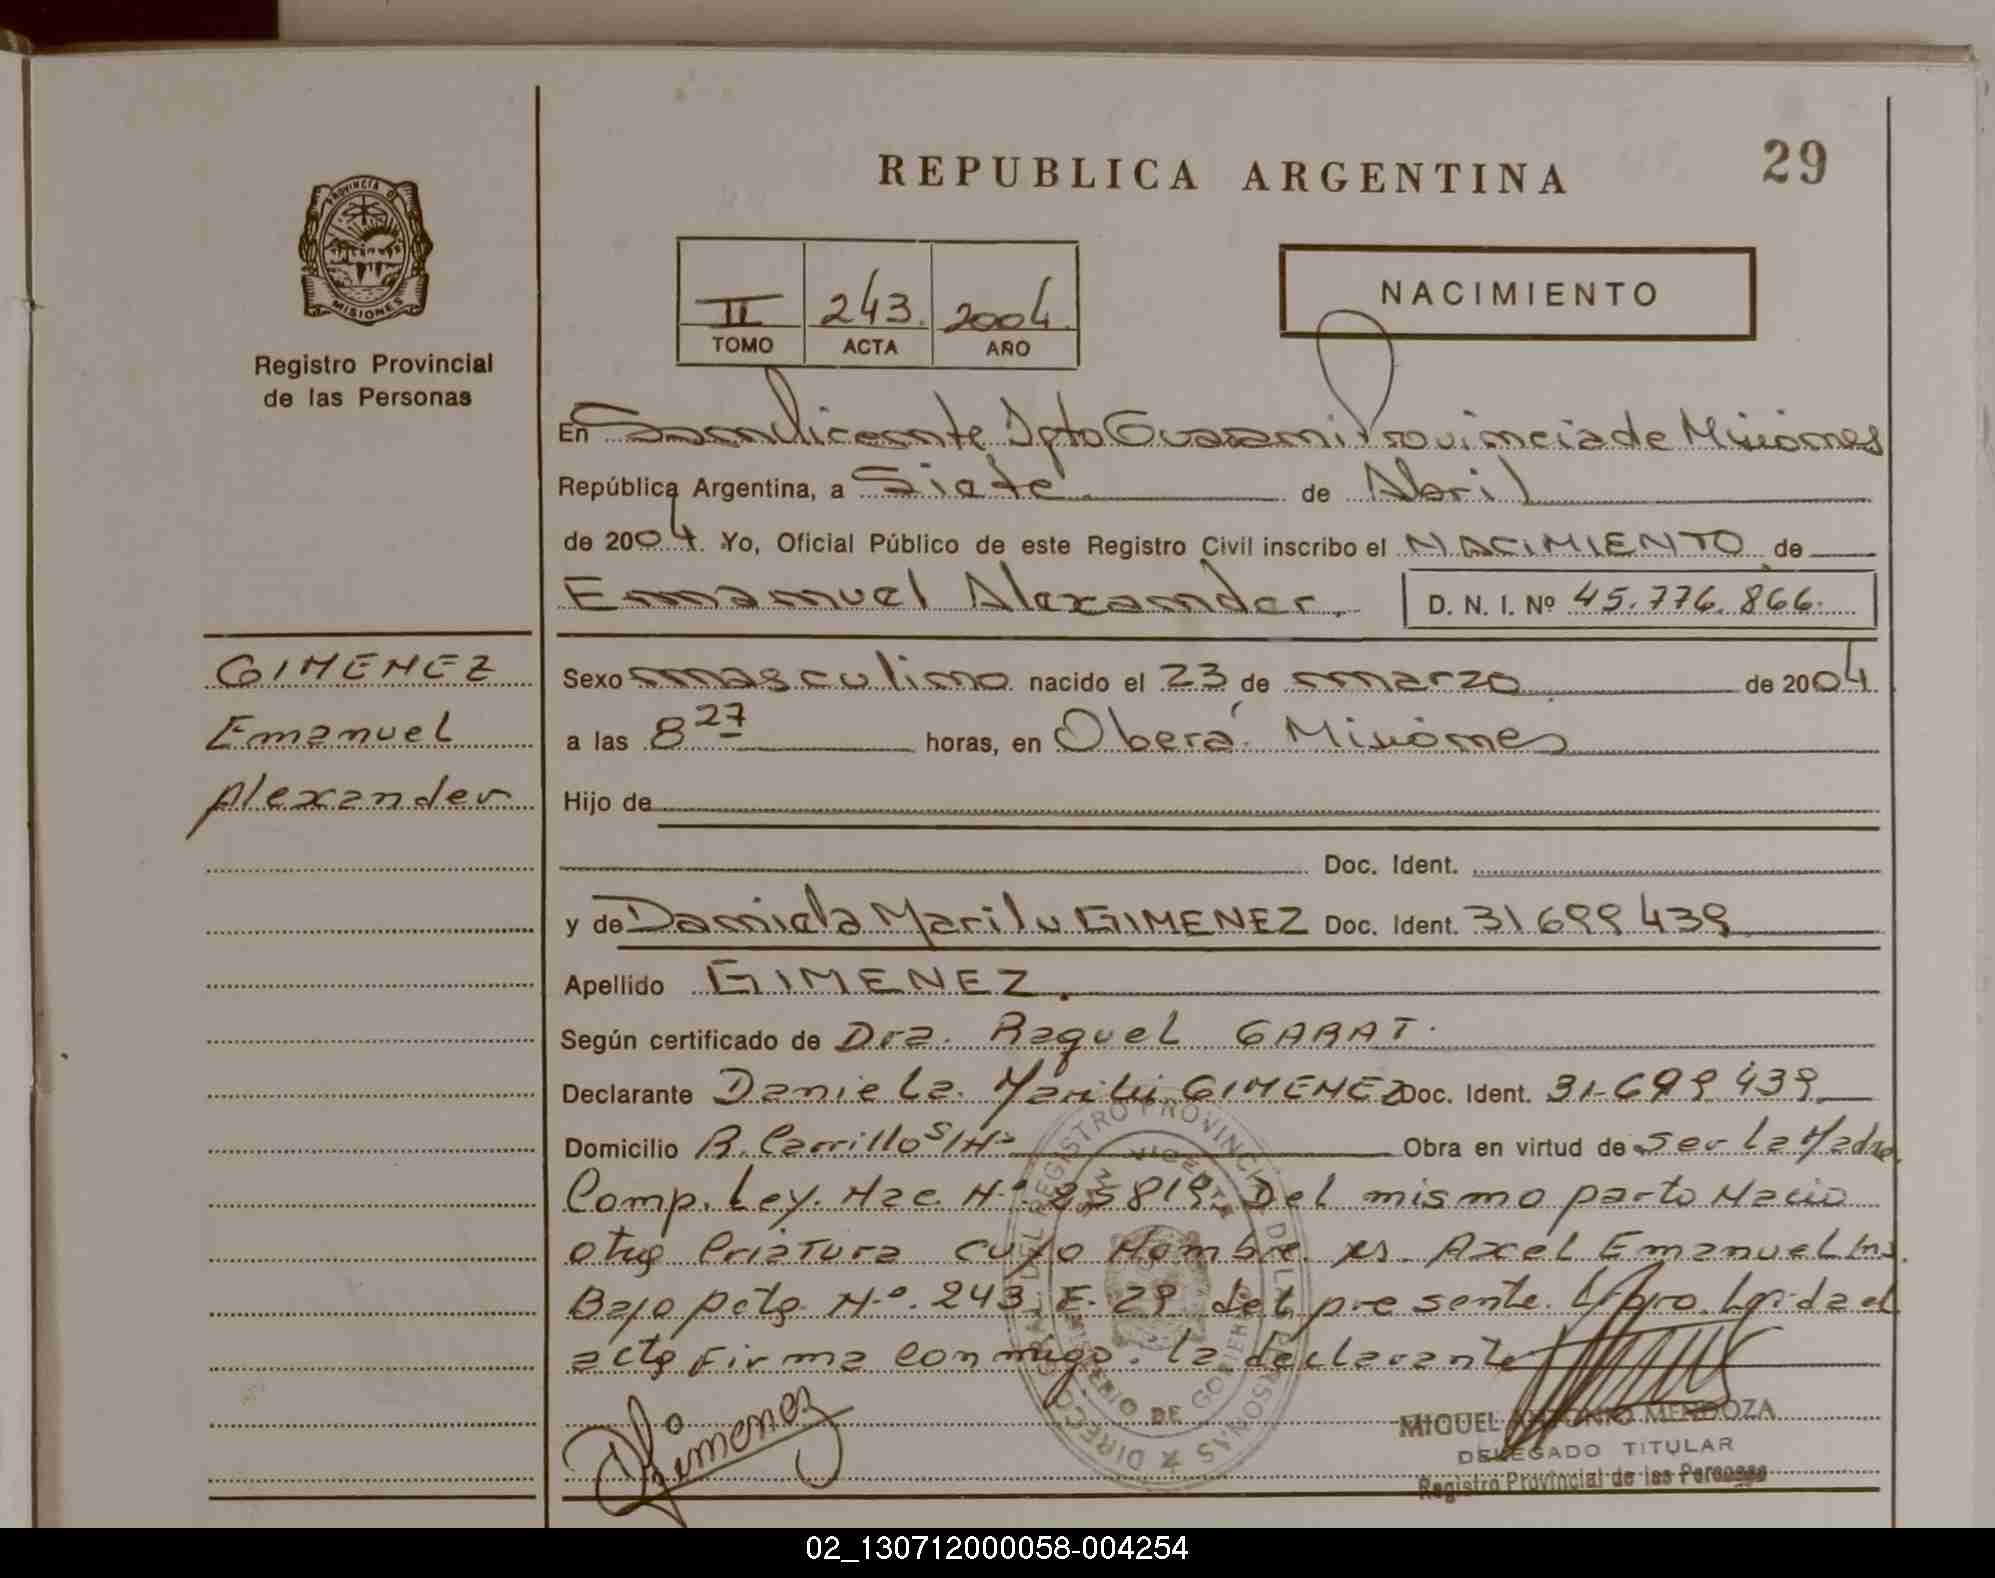 REPUBLICA ARGENTINA
29
PROVINCIA DE MISIONES
Registro Provincial
de las Personas
II 243. 2004.
TOMO ACTA AÑO
NACIMIENTO
En San Vicente Dpto Guarani Provincia de Misiones
República Argentina, a Siete de Abril
de 2004. Yo, Oficial Público de este Registro Civil inscribo el NACIMIENTO de
Emmanuel Alexander. D. N. I. Nº 45.776.866.
GIMENEZ
Emanuel
Alexander
Sexo masculino nacido el 23 de marzo de 2004
a las 8 27 horas, en Oberá Misiones
Hijo de
Doc. Ident.
y de Daniela Marilu GIMENEZ Doc. Ident. 31699439
Apellido GIMENEZ.
Según certificado de Dra. Raquel GARAT.
Declarante Daniela Marilú GIMENEZ Doc. Ident. 31-699 439
Domicilio R. Carrillo S/Nº Obra en virtud de Ser la Madre.
Comp. Ley. Nac. Nº 25819. Del mismo parto Nacio
otra Criatura cuyo Nombre es Axel Emanuel Ins.
Bajo Acta Nº. 243. F. 29 del presente Libro. Leida el
acta Firma conmigo. la declarante
DGimenez
SAN VICENTE
MINISTERIO DE GOBIERNO
MIGUEL ANTONIO MENDOZA
DELEGADO TITULAR
Registro Provincial de las Personas
02_130712000058-004254